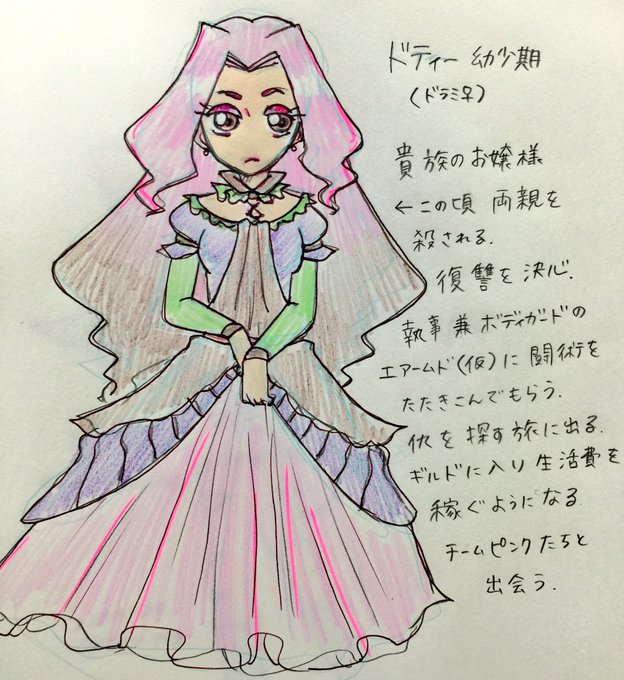 ドティー 幼少期
(ドラミ♀)
貴族のお嬢様
←この頃 両親を
殺される.
復讐を決心.
執事 兼 ボディガードの
エアームド(仮)に 闘術を
たたきこんでもらう.
仇を 探す旅に出る.
ギルドに入り 生活費を
稼ぐようになる
チームピンクたちと
出会う.